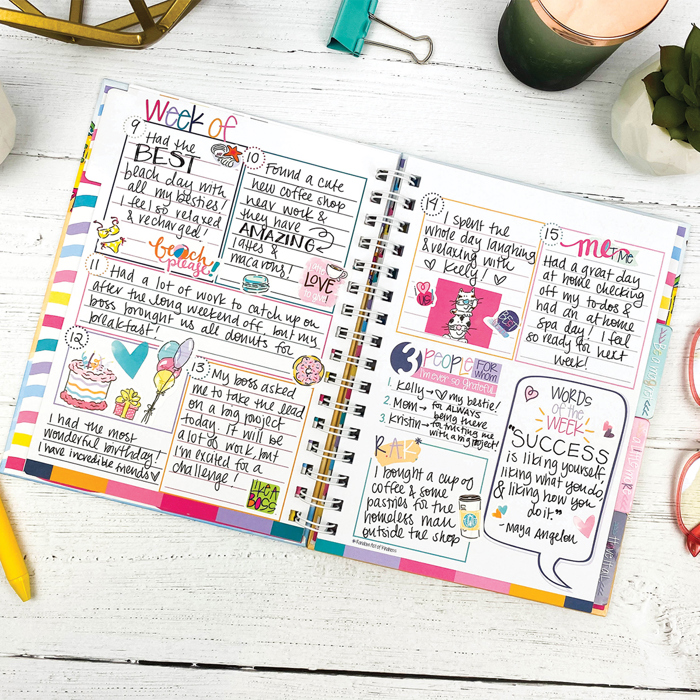 Week of
9
Had the
BEST
beach day with
all my besties!
I feel so relaxed
& recharged!
beach
please!
10
Found a cute
new coffee shop
near work &
they have
AMAZING
lattes &
macarons!
LOVE
11
Had a lot of work to catch up on
after the long weekend off but my
boss brought us all donuts for
breakfast!
12
I had the most
wonderful birthday!
I have incredible friends
13
My boss asked
me to take the lead
on a big project
today. It will be
a lot of work, but
I'm excited for a
challenge!
LIKE A
BOSS
14
I spent the
whole day laughing
& relaxing with
Kelly!
BEST
15
me TIME
Had a great day
at home checking
off my to-dos &
had an at home
spa day! I feel
so ready for next
week!
3 PEOPLE FOR whom
I'm ever so grateful
1. Kelly → my bestie!
2. Mom → for ALWAYS
being there
3. Kristin → for trusting me
with a big project!
RAK*
I bought a cup of
coffee & some
pastries for the
homeless man
outside the shop
*Random Act of Kindness
WORDS
of the
WEEK
"SUCCESS
is liking yourself,
liking what you do,
& liking how you
do it."
- Maya Angelou